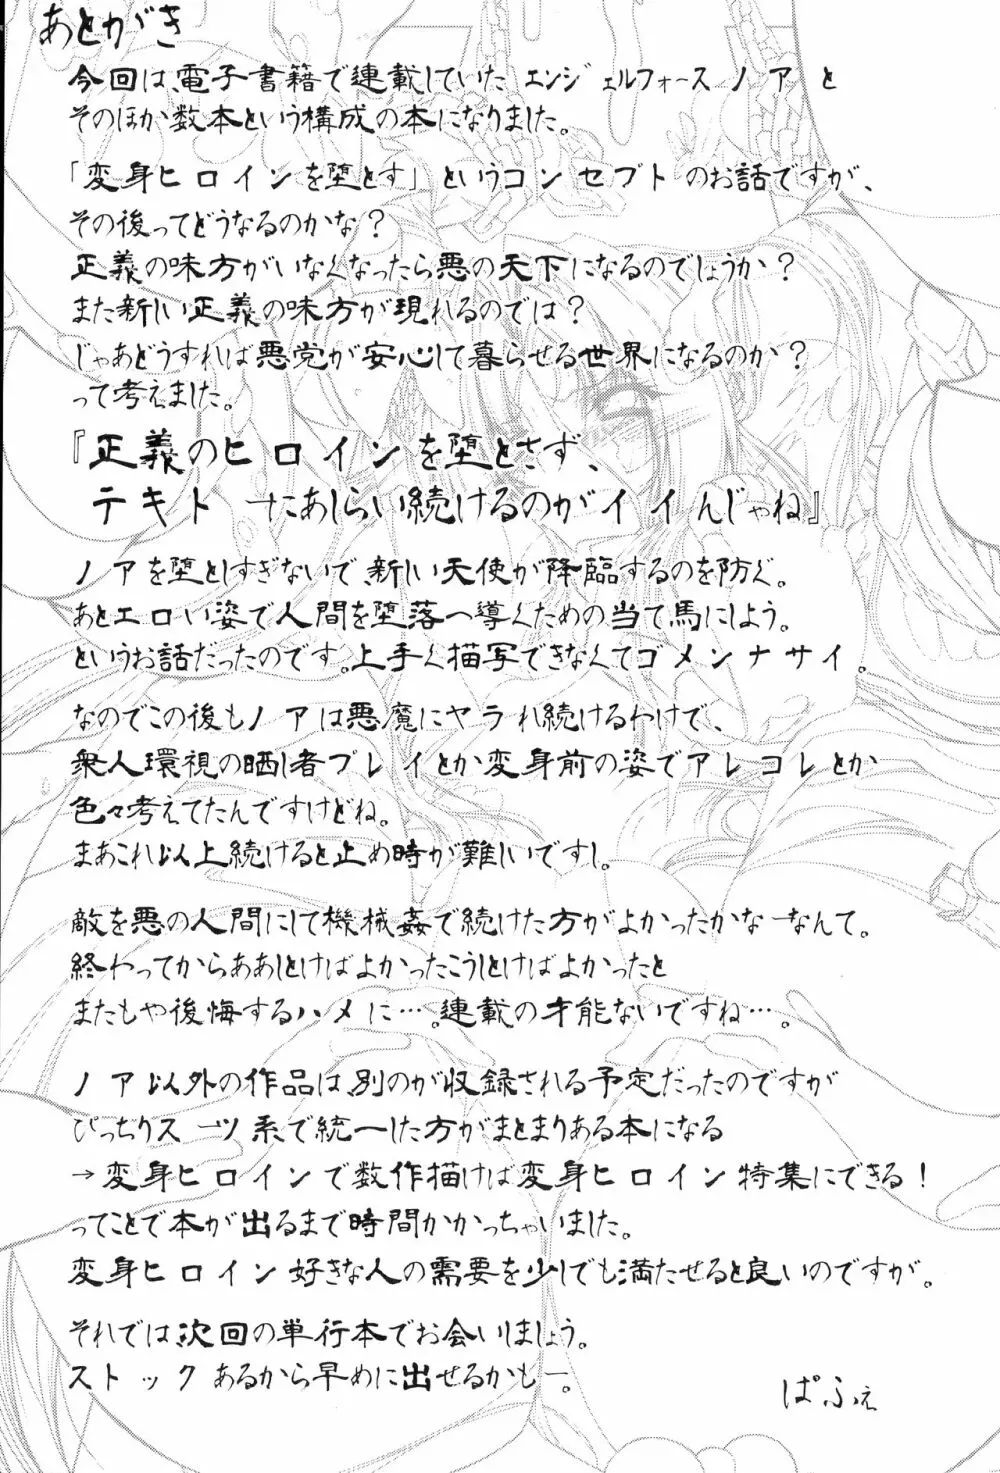 あとがき
今回は、電子書籍で連載していたエンジェルフォースノアと
そのほか数本という構成の本になりました。
「変身ヒロインを堕とす」というコンセプトのお話ですが、
その後ってどうなるのかな？
正義の味方がいなくなったら悪の天下になるのでしょうか？
また新しい正義の味方が現れるのでは？
じゃあどうすれば悪党が安心して暮らせる世界になるのか？
って考えました。
『正義のヒロインを堕とさず、
テキトーにあしらい続けるのがイイんじゃね』
ノアを堕としすぎないで、新しい天使が降臨するのを防ぐ。
あとエロい姿で人間を堕落へ導くための当て馬にしよう。
というお話だったのです。上手く描写できなくてゴメンナサイ。
なのでこの後もノアは悪魔にヤラれ続けるわけで、
衆人環視の晒し者プレイとか変身前の姿でアレコレとか
色々考えてたんですけどね。
まあこれ以上続けると止め時が難しいですし。
敵を悪の人間にして機械姦で続けた方がよかったかなーなんて。
終わってからああしとけばよかったこうしとけばよかったと
またもや後悔するハメに…。連載の才能ないですね…。
ノア以外の作品は、別のが収録される予定だったのですが
ぴっちりスーツ系で統一した方がまとまりある本になる
→変身ヒロインで数作描けば変身ヒロイン特集にできる！
ってことで本が出るまで時間かかっちゃいました。
変身ヒロイン好きな人の需要を少しでも満たせると良いのですが。
それでは次回の単行本でお会いしましょう。
ストックあるから早めに出せるかもー。
ぱふぇ